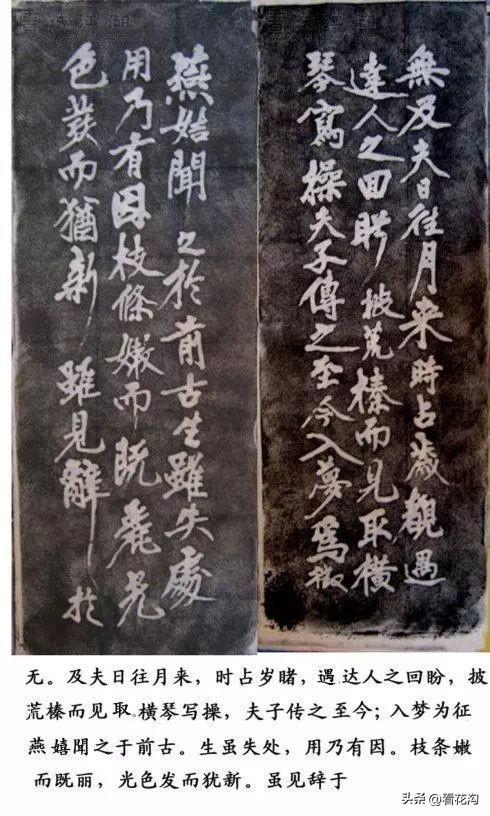 無及夫日往月来時占歲覩遇
達人之回眄披荒榛而見取橫
琴寫操夫子傳之至今入夢爲徵
燕姞聞之於前古生雖失處
用乃有因枝條嫩而既麗光
色發而猶新雖見辭於
无。及夫日往月来，时占岁睹，遇达人之回盼，披
荒榛而见取。横琴写操，夫子传之至今；入梦为征
燕嬉聞之于前古。生虽失处，用乃有因。枝条嫩
而既丽，光色发而犹新。虽见辞于
头条@看花沟